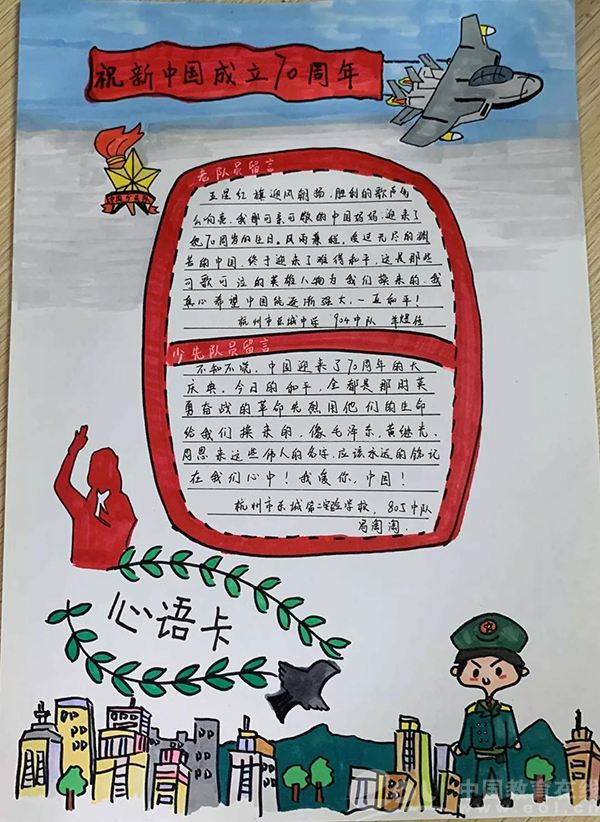 祝新中国成立70周年
老队员留言
五星红旗迎风翱扬，胜利的歌声多
么响亮，我那可亲可敬的中国妈妈，迎来了
她70周岁的生日。风雨兼程，度过无尽的
苦的中国，终于迎来了难得和平，这是那些
可歌可泣的英雄人物为我们换来的，我
真心希望中国能逐渐强大，一直和平！
杭州市东城中学 904中队
少先队员留言
不知不觉，中国迎来了70周年的大
庆典，今日的和平，全都是那时英
勇奋战的革命先烈用他们的生命
给我们换来的，像毛泽东，黄继光，
周恩来这些伟人的名字，应该永远的铭记
在我们心中！我爱你，中国！
杭州市东城第二实验学校，805中队
冯陶陶
心语卡
中国教育在线
www.eol.cn